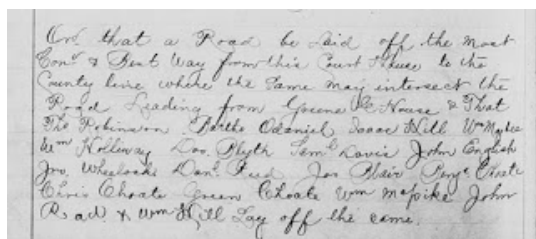 Ord. that a Road be Laid off the most
Conv. & Best Way from this Court House to the
County line where the same may intersect the
Road Leading from Greene Ct House & That
Tho Robinson Bartho Odaniel Isaac Hill Wm
Wm Holloway Dav. Blyth Saml Davis John English
Jno. Wheelock Danl. Reed Jas Blair Benja. Choate
Chris Choate Green Choate Wm McPike John
Read & Wm Hill Lay off the same.